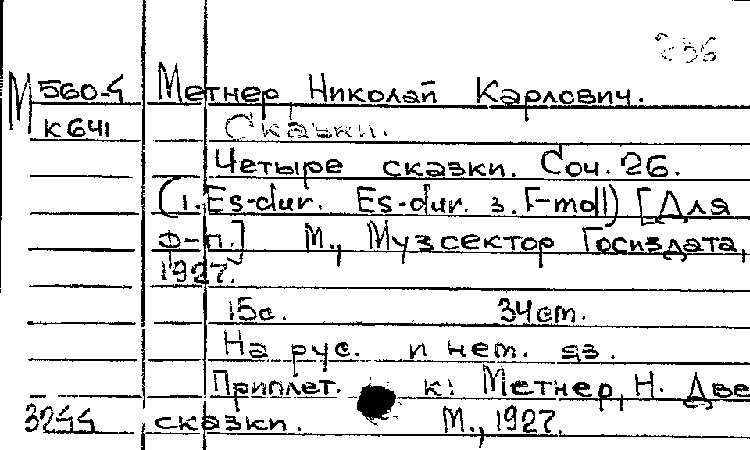 236
М 560-4 Метнер Николай Карлович.
к 641 Сказки.
Четыре сказки. Соч. 26.
(1. Es-dur. Es-dur. 3. F-moll) [Для
ф-п.] М., Музсектор Госиздата,
1927.
15с. 34cm.
На рус. и нем. яз.
Приплет. к: Метнер, Н. Две
3244 сказки. М., 1927.